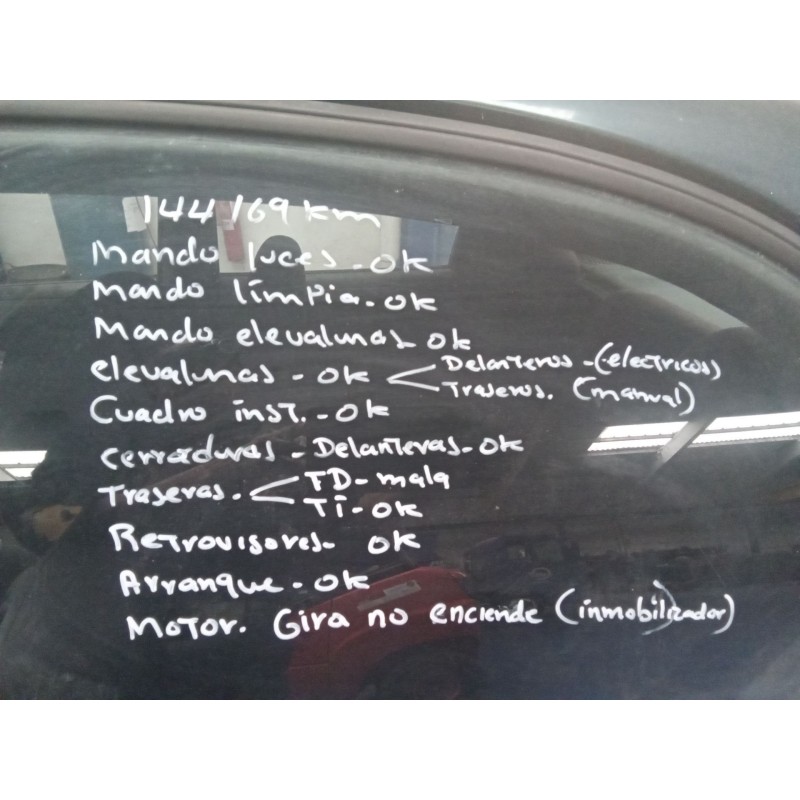 144169 km
Mando luces - OK
Mando limpia - OK
Mando elevalunas OK
elevalunas - OK < Delanteros - (electricos)
Traseros. (manual)
Cuadro inst. - OK
cerraduras - Delanteras - OK
Traseras. < TD - mala
TI - OK
Retrovisores - OK
Arranque - OK
Motor. Gira no enciende (inmobilizador)